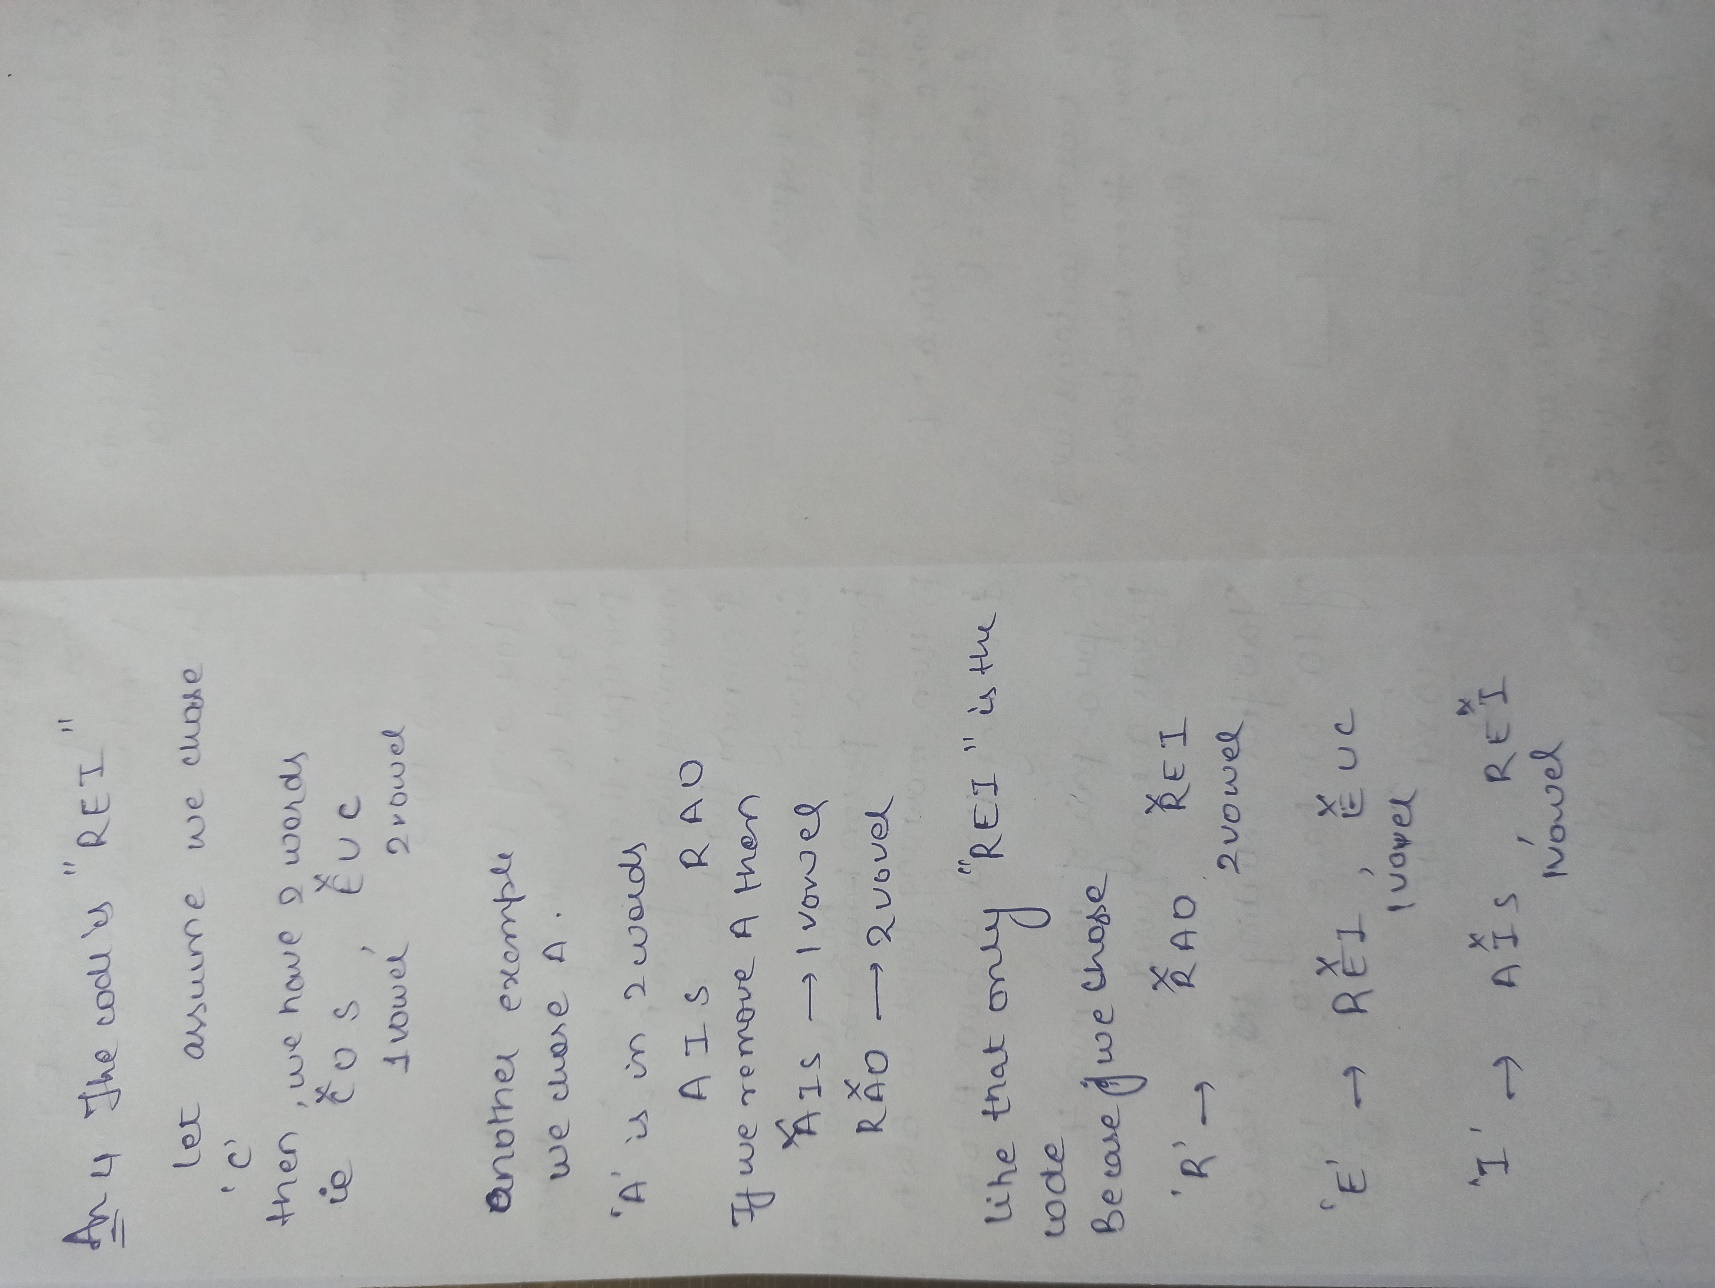 An 4 The code is "REI"
Let assume we chose
'C'
then, we have 2 words
ie COS, EUC
1 vowel 2 vowel
Another example
we chose A.
'A' is in 2 words
AIS RAO
If we remove A then
AIS → 1 vowel
RAO → 2 vowel
like that only "REI" is the
code
Because if we chose
'R' → RAO REI
2 vowel
'E' → REI, EUC
1 vowel
'I' → AIS, REI
1 vowel